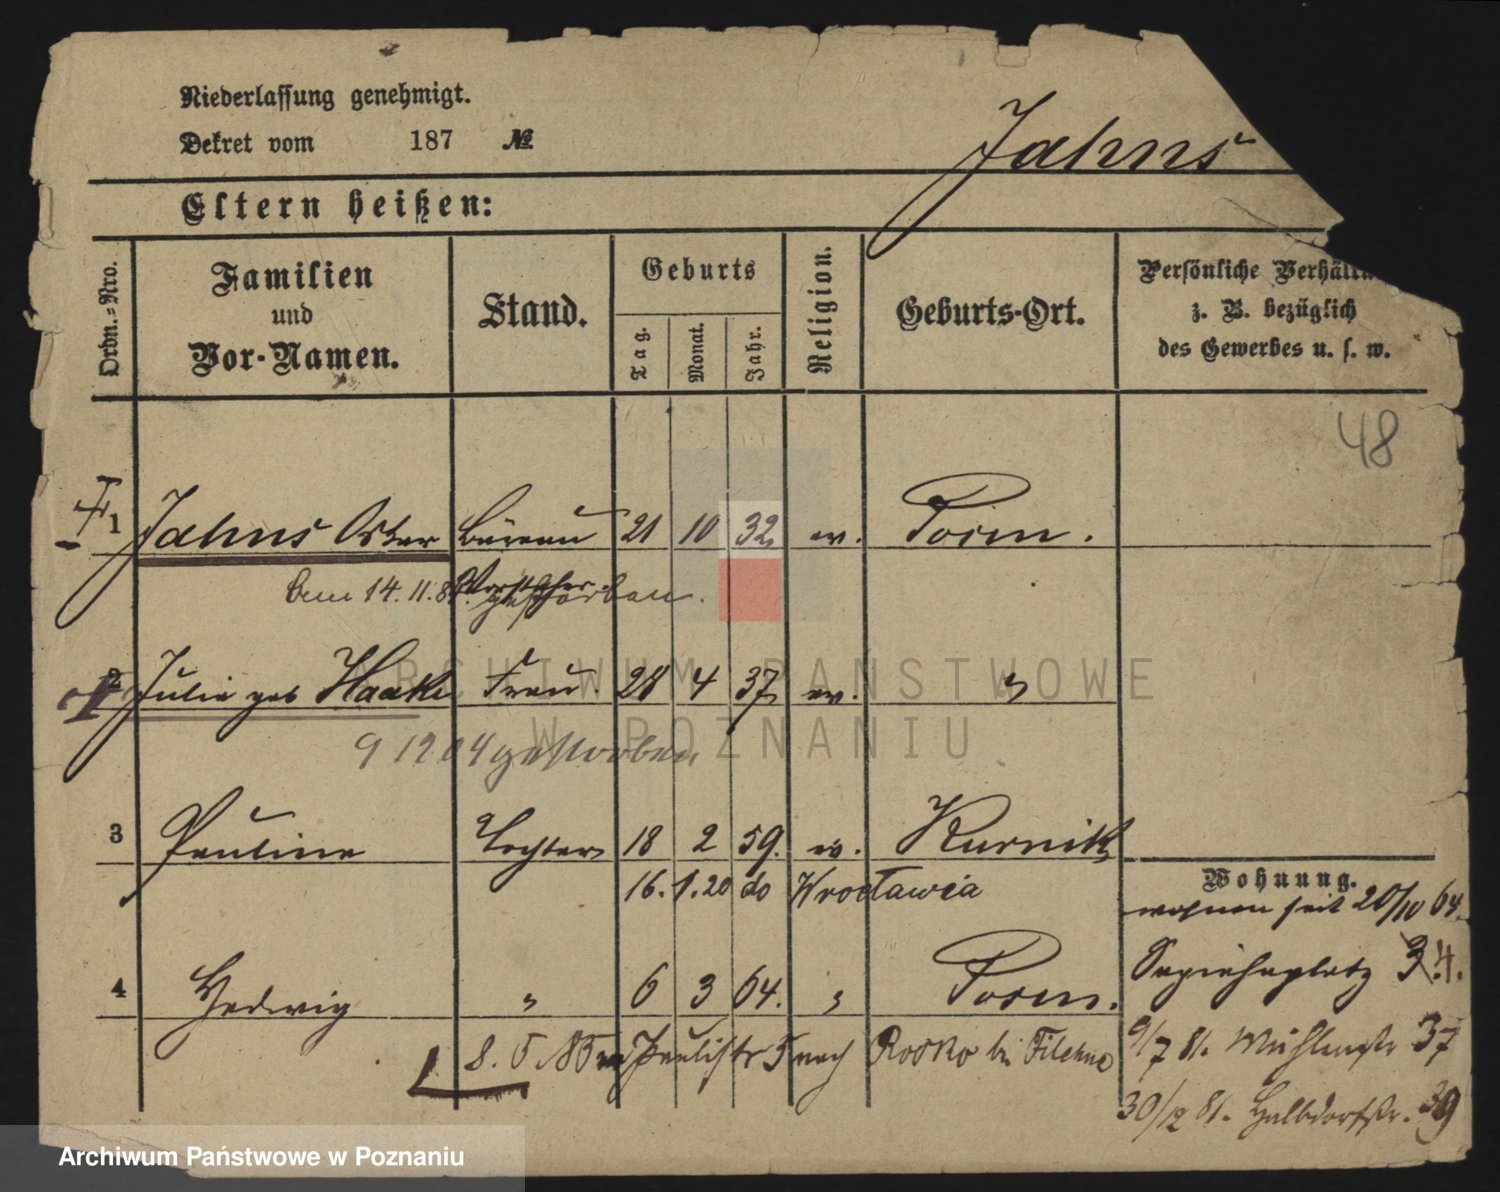 Niederlassung genehmigt.
Dekret vom 187 №
Jahns
Eltern heißen:
Ordn.-Nro.
Familien und Vor-Namen.
Stand.
Geburts
Tag.
Monat.
Jahr.
Religion.
Geburts-Ort.
Persönliche
z. B. bezüglich
des Gewerbes u. s. w.
48
1 Jahns Oskar Büreau 21 10 32 ev. Posen.
Vorsteher
am 14. 11. gestorben.
2 Julie geb Haake Frau. 28 4 37 ev. "
9 12 04 gestorben
3 Pauline Tochter 18 2 59. ev. Kurnik
16. 1. 20 do Wrocławia
Wohnung.
wohnen seit 20/10 64.
4 Hedwig " 6 3 64. " Posen.
Sapiehaplatz 3 4.
8. 5. 85 Paulistr 5 nach Rosko bei Filehne
9/7 81. Mühlenstr 37
30/12 81. Halbdorfstr. 39
ARCHIWUM PAŃSTWOWE
W POZNANIU
Archiwum Państwowe w Poznaniu